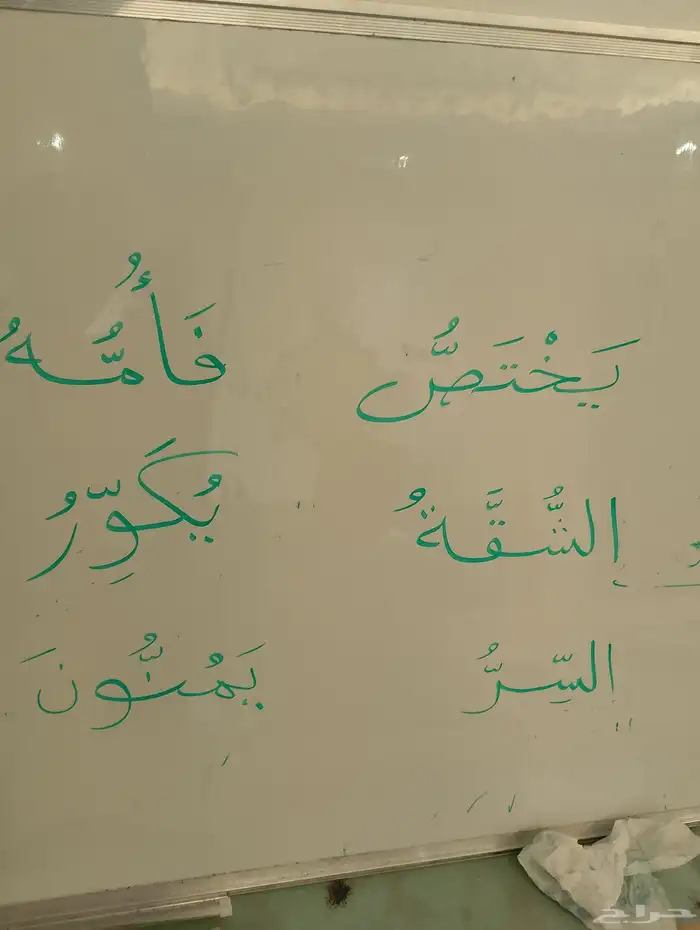 يَخْتَصُّ فَأُمُّهُ
الشُّقَّةُ يُكَوِّرُ
السِّرُّ يَمُنُّونَ
حراج